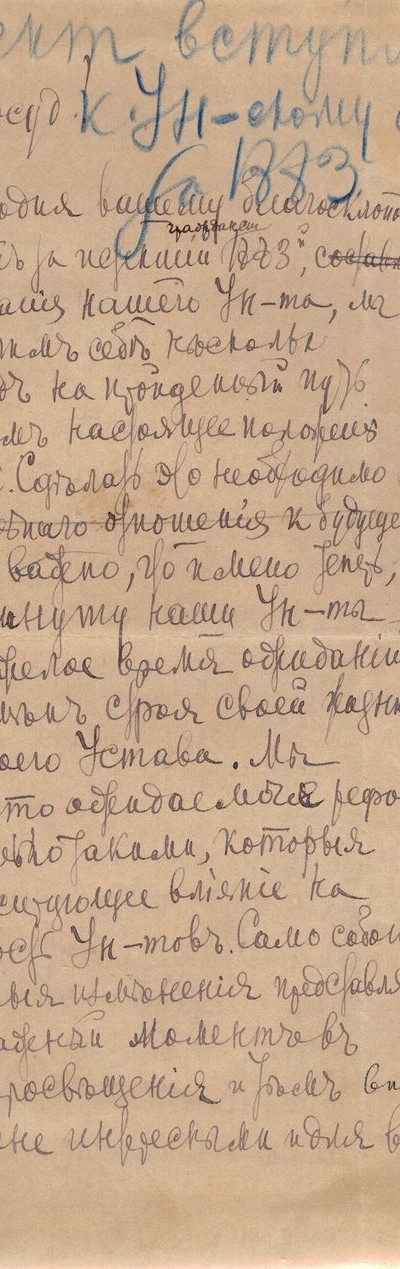 ект вступи
осуд. к Ун-скому
1883
одня вашему благосклон
графамъ
ъ за истекши 1883", составл
нашего Ун-та, мы
имъ себѣ нѣскольк
дъ на пройденный путь
мъ настоящее положенія
. Сдѣлать это необходимо
наго отношенія к будуще
важно, что именно теперь,
инуту наши Ун-ты
время ожиданій
строя своей жизни
оего Устава. Мы
то ожидаемыя рефо
такими, которыя
вліяніе на
ость Ун-товъ. Само собой
выя измѣненія представля
моментовъ
росвѣщенія и тѣмъ
не интересными и для в